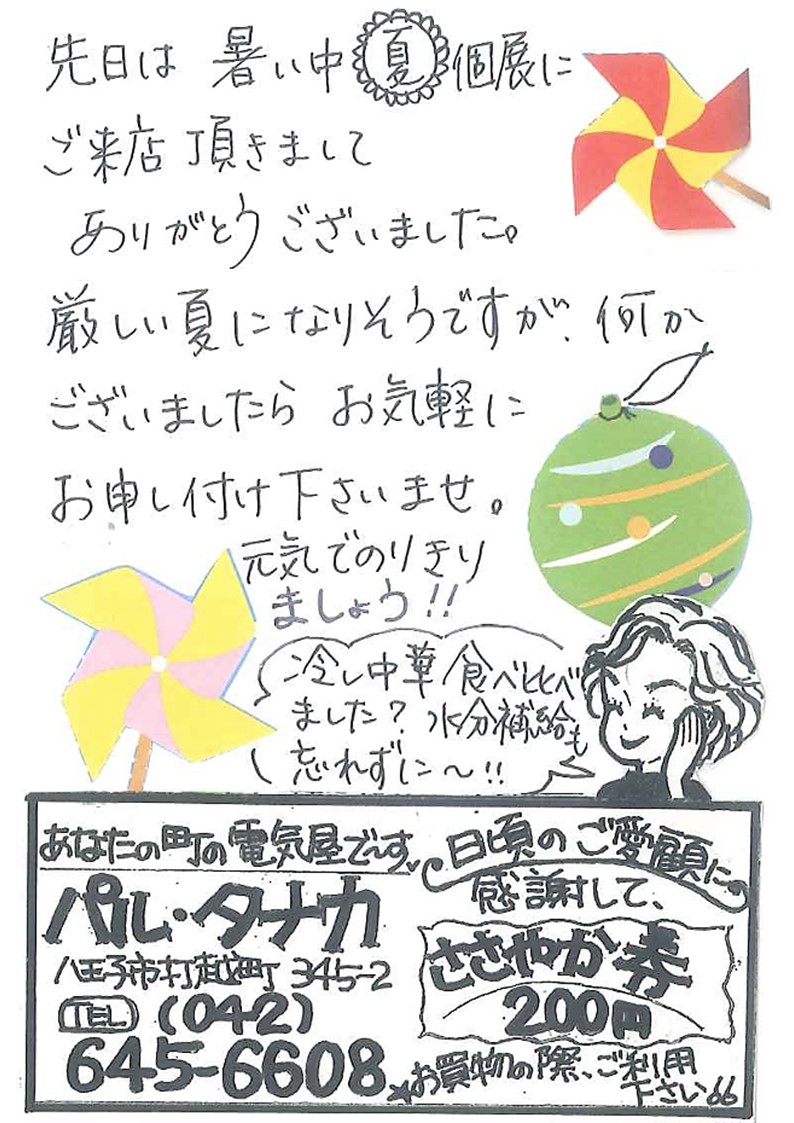 先日は 暑い中 夏 個展に
ご来店 頂きまして
ありがとうございました。
厳しい夏になりそうですが、何か
ございましたら お気軽に
お申し付け下さいませ。
元気でのりきり
ましょう!!
冷し中華 食べヒヒべ
ました? 水分補給も
忘れずに〜!!
あなたの町の電気屋です
パル・タナカ
八王子市打越町 345-2
TEL (042)
645-6608
日頃のご愛顧に
感謝して、
ささやか券
200円
★お買物の際、ご利用
下さい